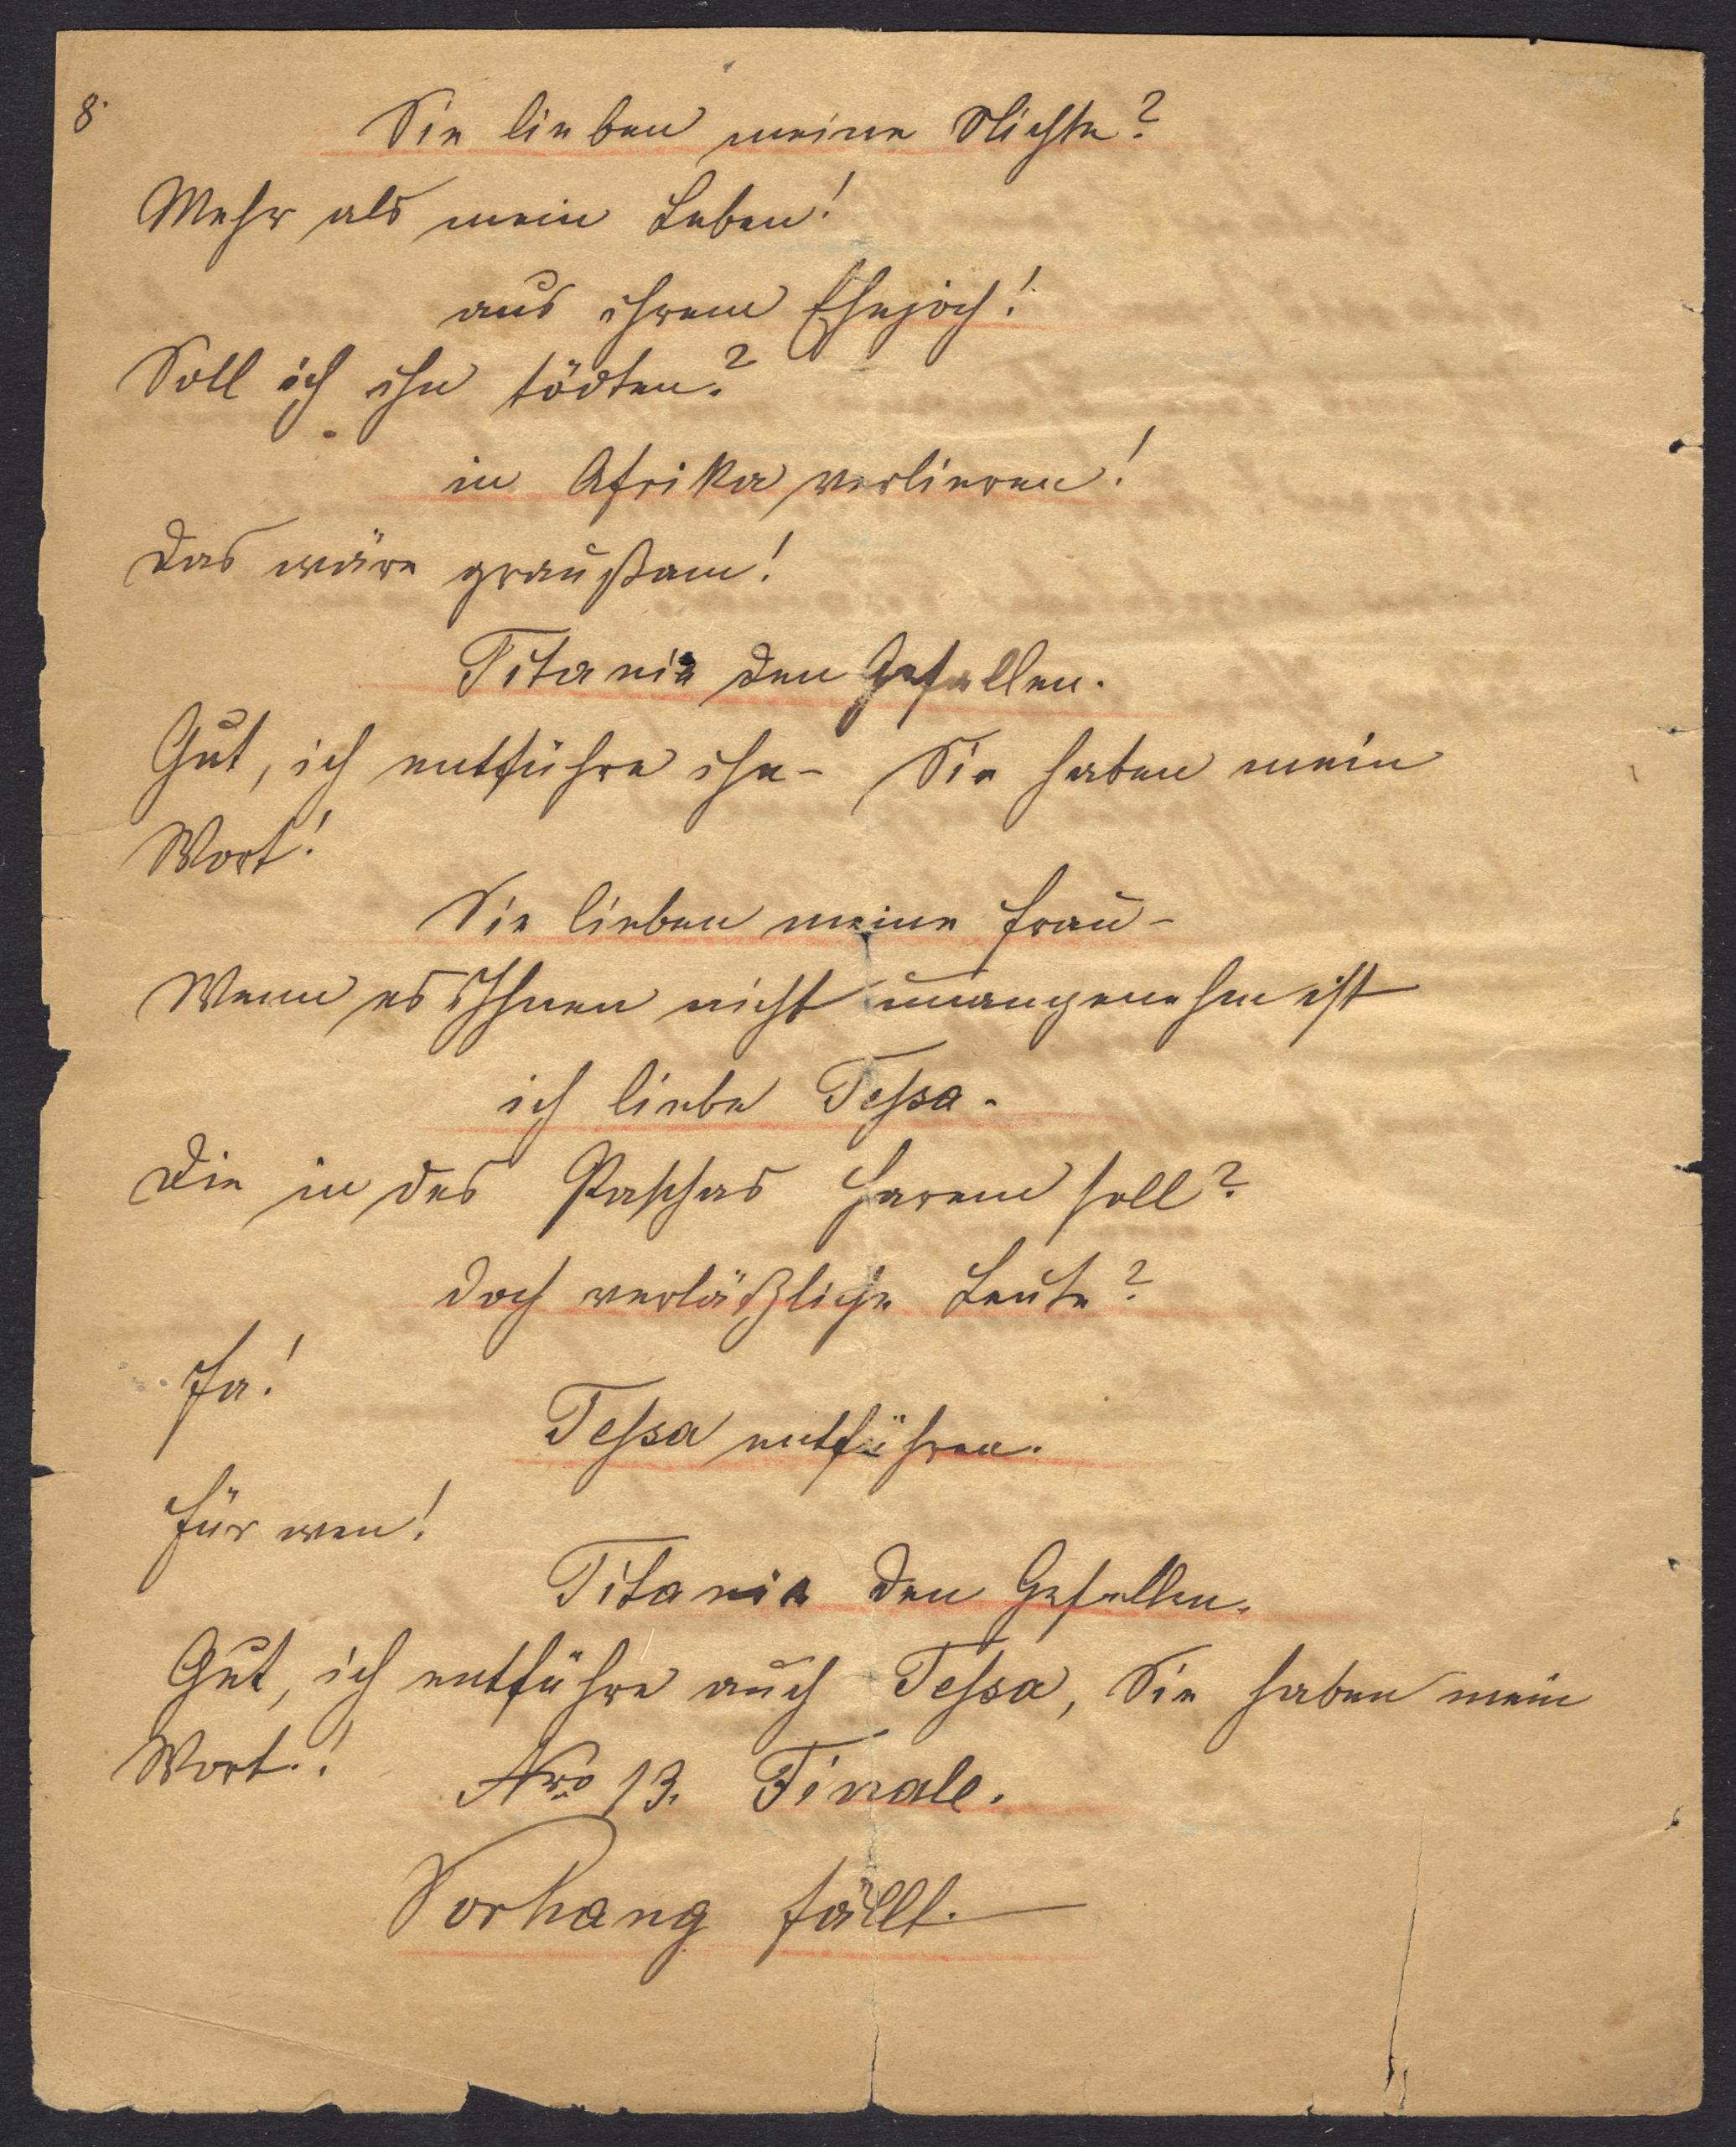 8.
Sie lieben meine Nichte?
Mehr als mein Leben!
aus ihrem Ehejoch!
Soll ich ihn tödten?
in Afrika verlieren!
Das wäre graußam!
Titania den Gefallen.
Gut, ich entführe ihn - Sie haben mein
Wort!
Sie lieben meine Frau -
Wenn es Ihnen nicht unangenehm ist
ich liebe Tessa.
Die in des Paschas Harem soll?
doch verläßliche Leute?
Ja!
Tessa entführen.
Für wen!
Titania den Gefallen.
Gut, ich entführe auch Tessa, Sie haben mein
Wort.!
Nro 13. Finale.
Vorhang fällt.